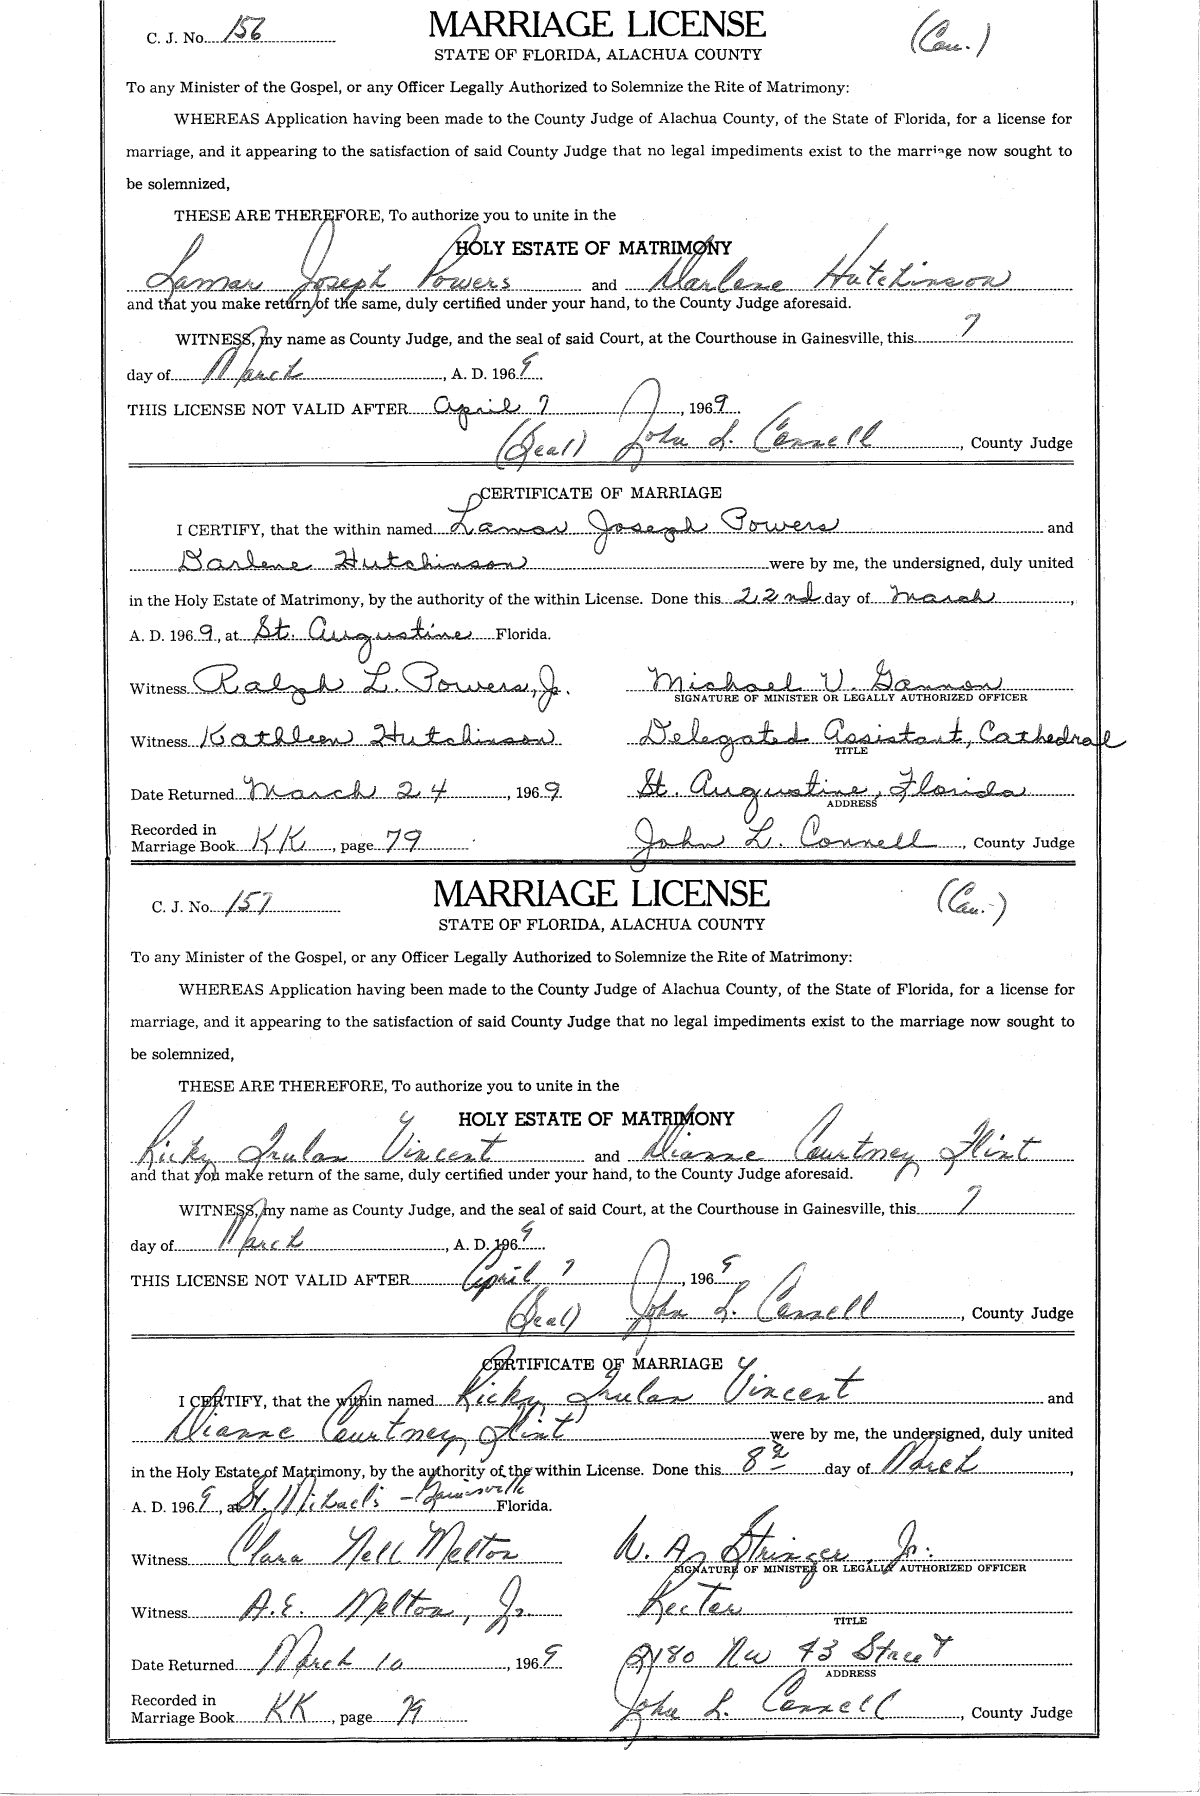 C. J. No. 156
MARRIAGE LICENSE
(Cau.)
STATE OF FLORIDA, ALACHUA COUNTY
To any Minister of the Gospel, or any Officer Legally Authorized to Solemnize the Rite of Matrimony:
WHEREAS Application having been made to the County Judge of Alachua County, of the State of Florida, for a license for
marriage, and it appearing to the satisfaction of said County Judge that no legal impediments exist to the marriage now sought to
be solemnized,
THESE ARE THEREFORE, To authorize you to unite in the
HOLY ESTATE OF MATRIMONY
Lamar Joseph Powers and Darlene Hutchinson
and that you make return of the same, duly certified under your hand, to the County Judge aforesaid.
WITNESS, my name as County Judge, and the seal of said Court, at the Courthouse in Gainesville, this 7
day of March, A. D. 1969.
THIS LICENSE NOT VALID AFTER April 7, 1969.
(Seal) John L. Connell, County Judge
CERTIFICATE OF MARRIAGE
I CERTIFY, that the within named Lamar Joseph Powers and
Darlene Hutchinson were by me, the undersigned, duly united
in the Holy Estate of Matrimony, by the authority of the within License. Done this 22nd day of March,
A. D. 1969, at St. Augustine Florida.
Witness Ralph L. Powers, Jr. Michael V. Gannon
SIGNATURE OF MINISTER OR LEGALLY AUTHORIZED OFFICER
Witness Kathleen Hutchinson Delegated Assistant, Cathedral
TITLE
Date Returned March 24, 1969 St. Augustine, Florida
ADDRESS
Recorded in
Marriage Book KK, page 79 John L. Connell, County Judge
C. J. No. 157
MARRIAGE LICENSE
(Cau.)
STATE OF FLORIDA, ALACHUA COUNTY
To any Minister of the Gospel, or any Officer Legally Authorized to Solemnize the Rite of Matrimony:
WHEREAS Application having been made to the County Judge of Alachua County, of the State of Florida, for a license for
marriage, and it appearing to the satisfaction of said County Judge that no legal impediments exist to the marriage now sought to
be solemnized,
THESE ARE THEREFORE, To authorize you to unite in the
HOLY ESTATE OF MATRIMONY
Ricky Trulan Vincent and Dianne Courtney Flint
and that you make return of the same, duly certified under your hand, to the County Judge aforesaid.
WITNESS, my name as County Judge, and the seal of said Court, at the Courthouse in Gainesville, this 7
day of March, A. D. 1969.
THIS LICENSE NOT VALID AFTER April 7, 1969.
(Seal) John L. Connell, County Judge
CERTIFICATE OF MARRIAGE
I CERTIFY, that the within named Ricky Trulan Vincent and
Dianne Courtney Flint were by me, the undersigned, duly united
in the Holy Estate of Matrimony, by the authority of the within License. Done this 8th day of March,
A. D. 1969, at St. Michael's - Gainesville Florida.
Witness Clara Nell Melton W. A. Stringer, Jr.
SIGNATURE OF MINISTER OR LEGALLY AUTHORIZED OFFICER
Witness A. E. Melton, Jr. Rector
TITLE
Date Returned March 10, 1969 2180 NW 43 Street
ADDRESS
Recorded in
Marriage Book KK, page 79 John L. Connell, County Judge